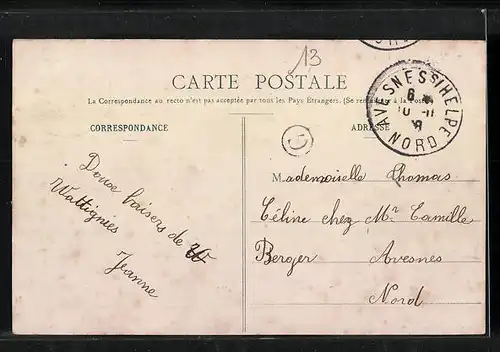 13
CARTE POSTALE
La Correspondance au recto n'est pas acceptée par tous les Pays Etrangers. (Se renseigner à la Poste
CORRESPONDANCE
ADRESSE
AVESNES S/HELPE
6
10 - 11
NORD
Doux baisers de
Wattignies
Jeanne
Mademoiselle Thomas
Céline chez Mr Camille
Berger Avesnes
Nord